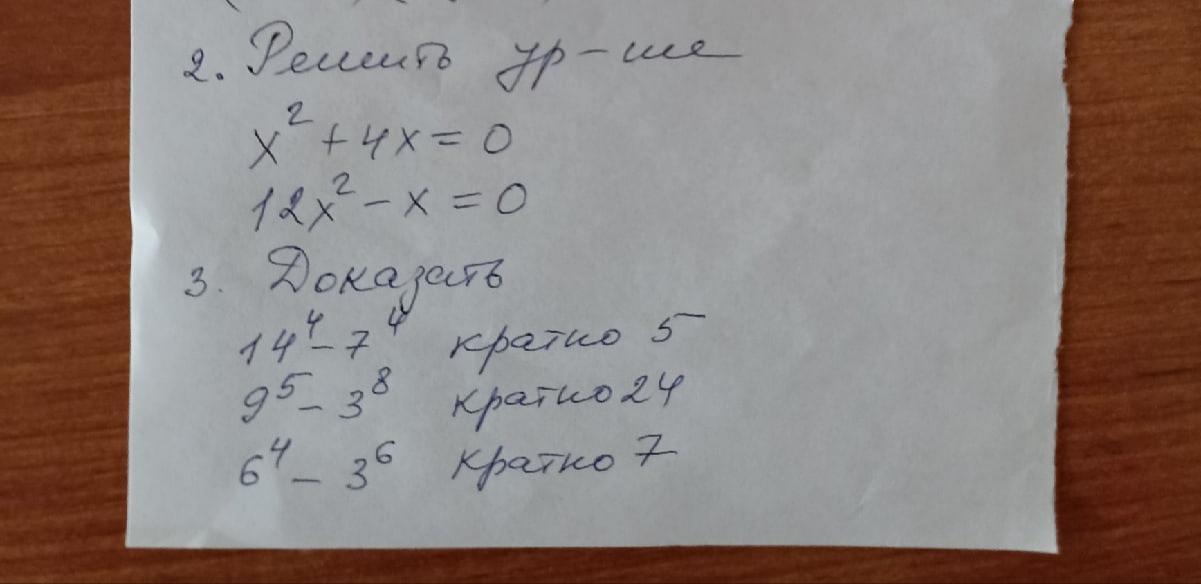 2. Решить ур-ние
x² + 4x = 0
12x² - x = 0
3. Доказать
14⁴ - 7⁴ кратно 5
9⁵ - 3⁸ кратно 24
6⁴ - 3⁶ кратно 7